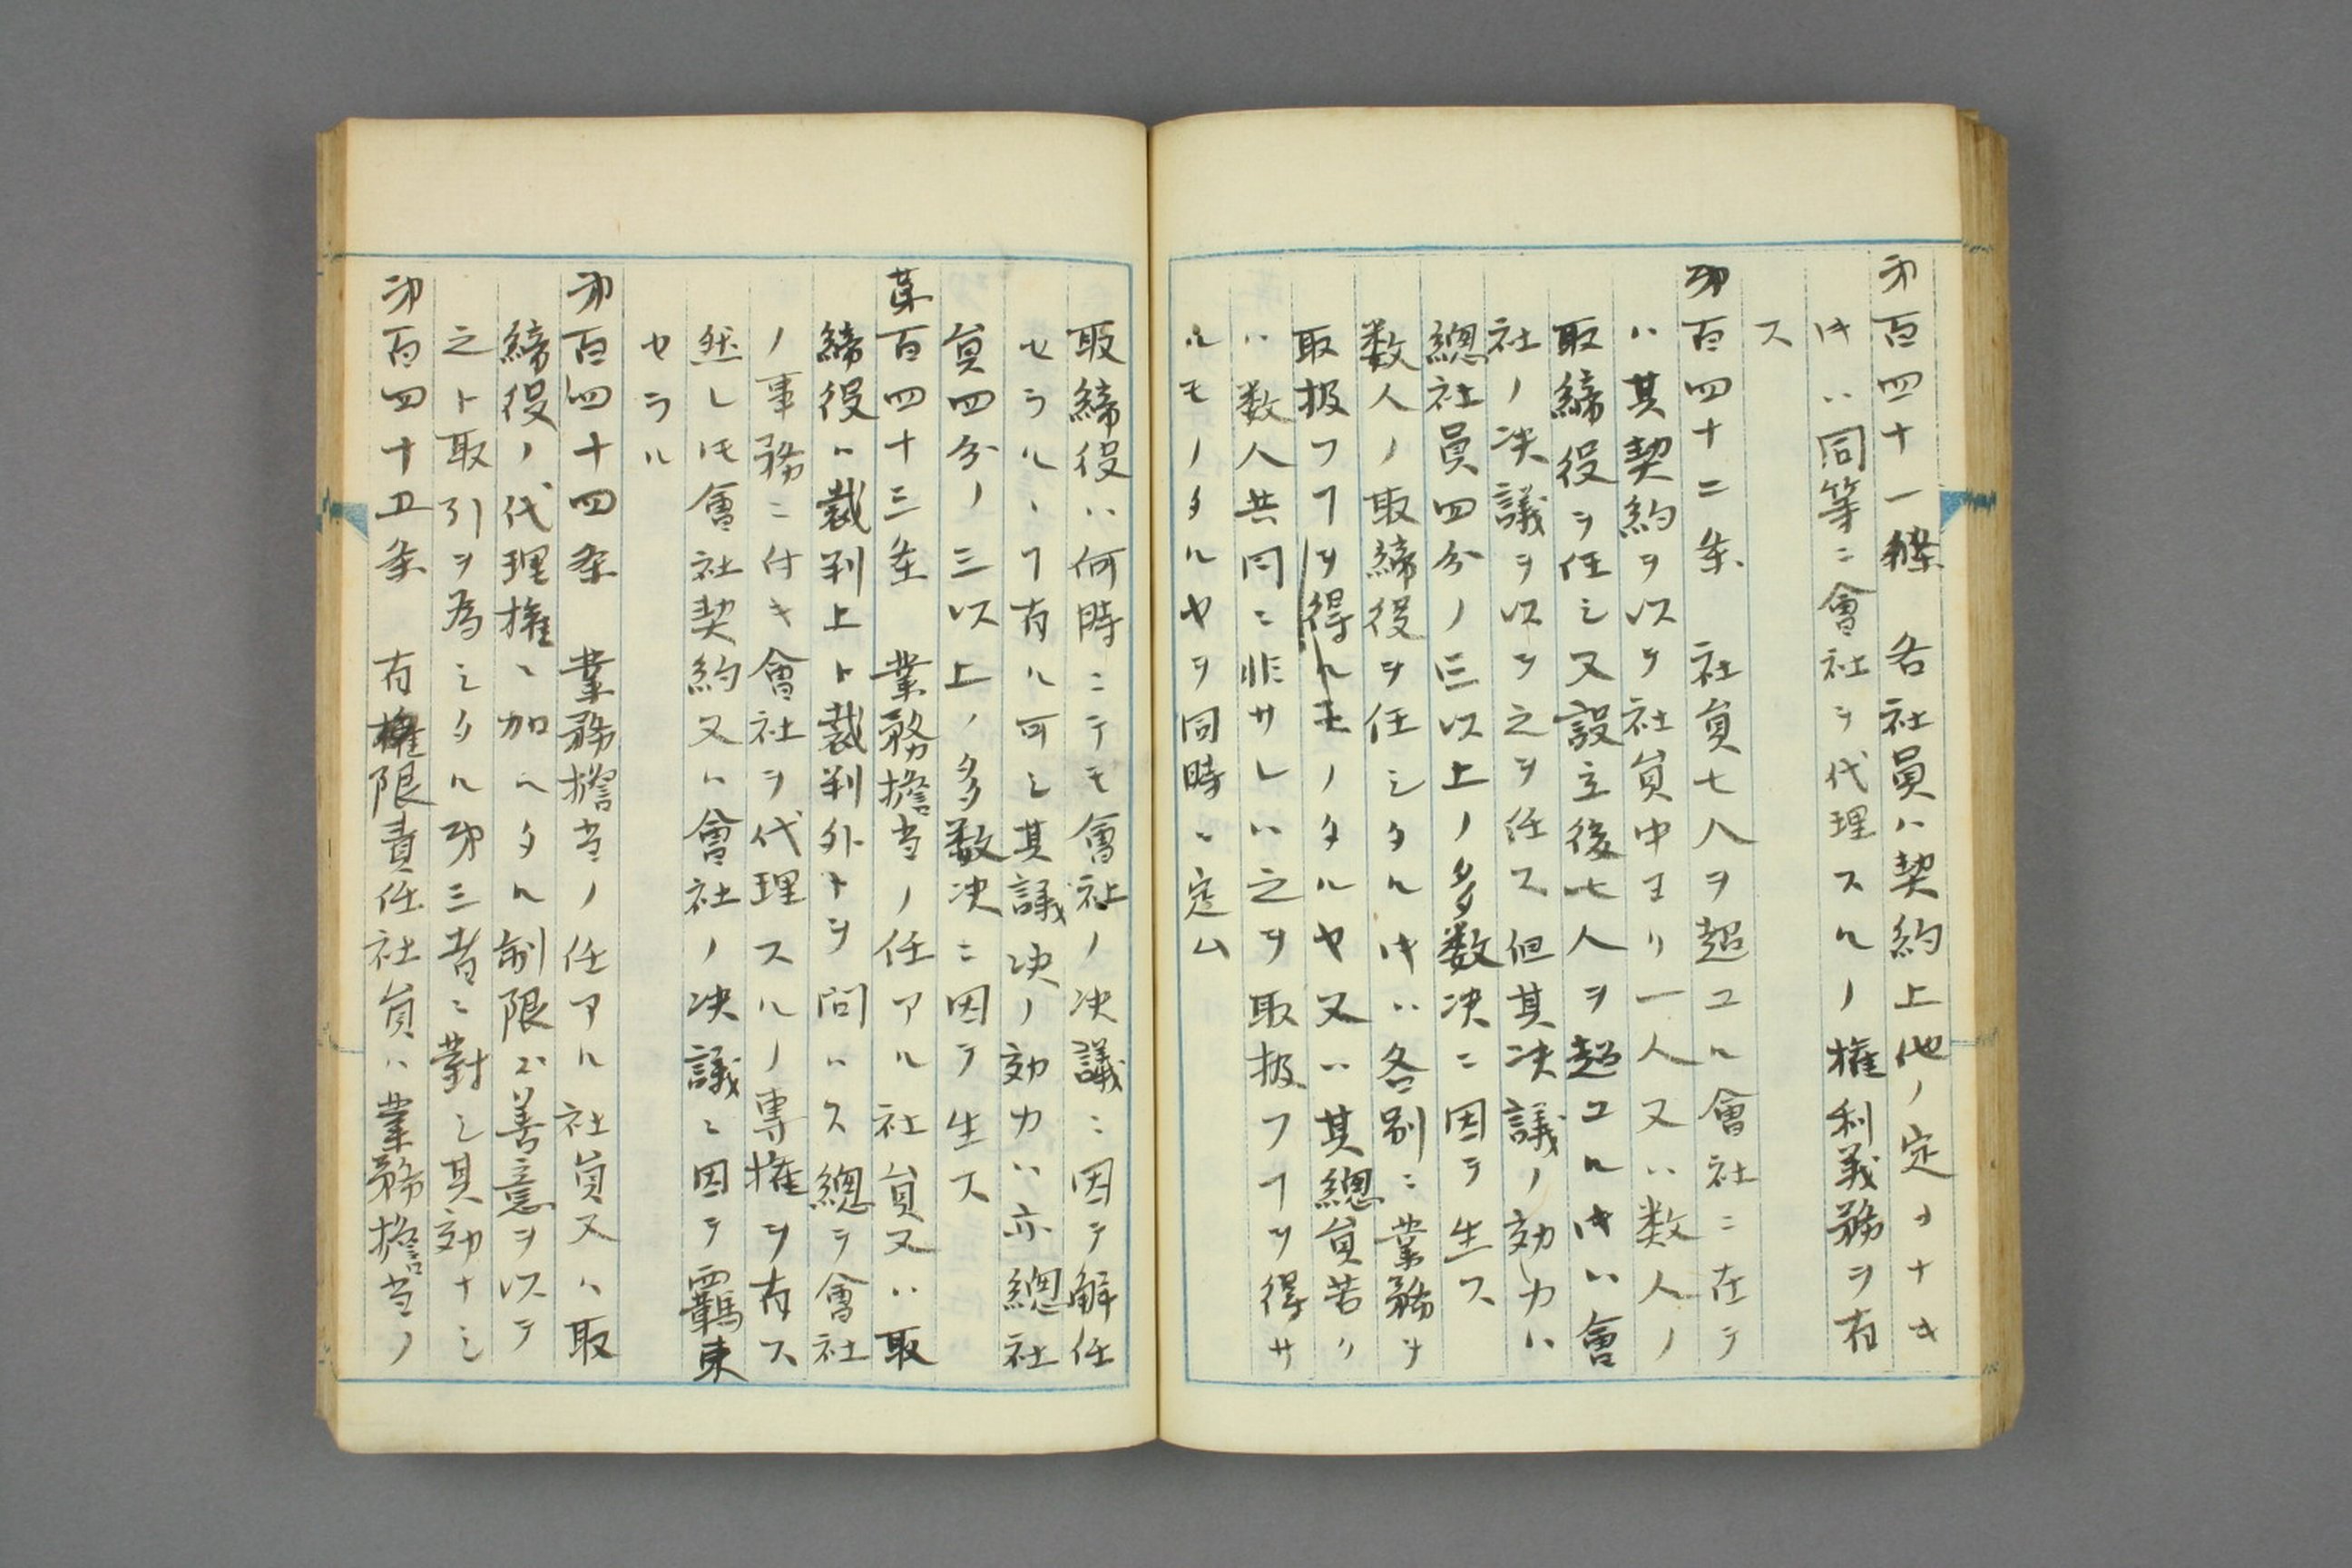 第百四十一條　各社員ハ契約上他ノ定メナキ
𪜈ハ同等ニ會社ヲ代理スルノ權利義務ヲ有
ス
第百四十二条　社員七人ヲ超ユル會社ニ在テ
ハ其契約ヲ以テ社員中ヨリ一人又ハ数人ノ
取締役ヲ任シ又設立後七人ヲ超ユル片ハ會
社ノ决議ヲ以テ之ヲ任ス但其决議ノ効力ハ
總社員四分ノ三以上ノ多数决ニ因テ生ス
数人ノ取締役ヲ任シタル片ハ各別ニ業務ヲ
取扱フヿヲ得ルモノタルヤ又ハ其總員若ク
ハ数人共同ニ非サレハ之ヲ取扱フヿヲ得サ
ルモノタルヤヲ同時ニ定ム
取締役ハ何時ニテモ會社ノ决議ニ因テ解任
セラルヽヿ有ル可シ其議决ノ効力ハ亦總社
員四分ノ三以上ノ多数决ニ因テ生ス
第百四十三条　業務擔当ノ任アル社員又ハ取
締役ハ裁判上ト裁判外トヲ問ハス總テ會社
ノ事務ニ付キ會社ヲ代理スルノ專権ヲ有ス
然レ𪜈會社契約又ハ會社ノ决議ニ因テ羈束
セラル
第百四十四条　業務擔当ノ任アル社員又ハ取
締役ノ代理権ニ加ヘタル制限ハ善意ヲ以テ
之ト取引ヲ為シタル第三者ニ對シ其効ナシ
第百四十五条　有権限責任社員ハ業務擔当ノ